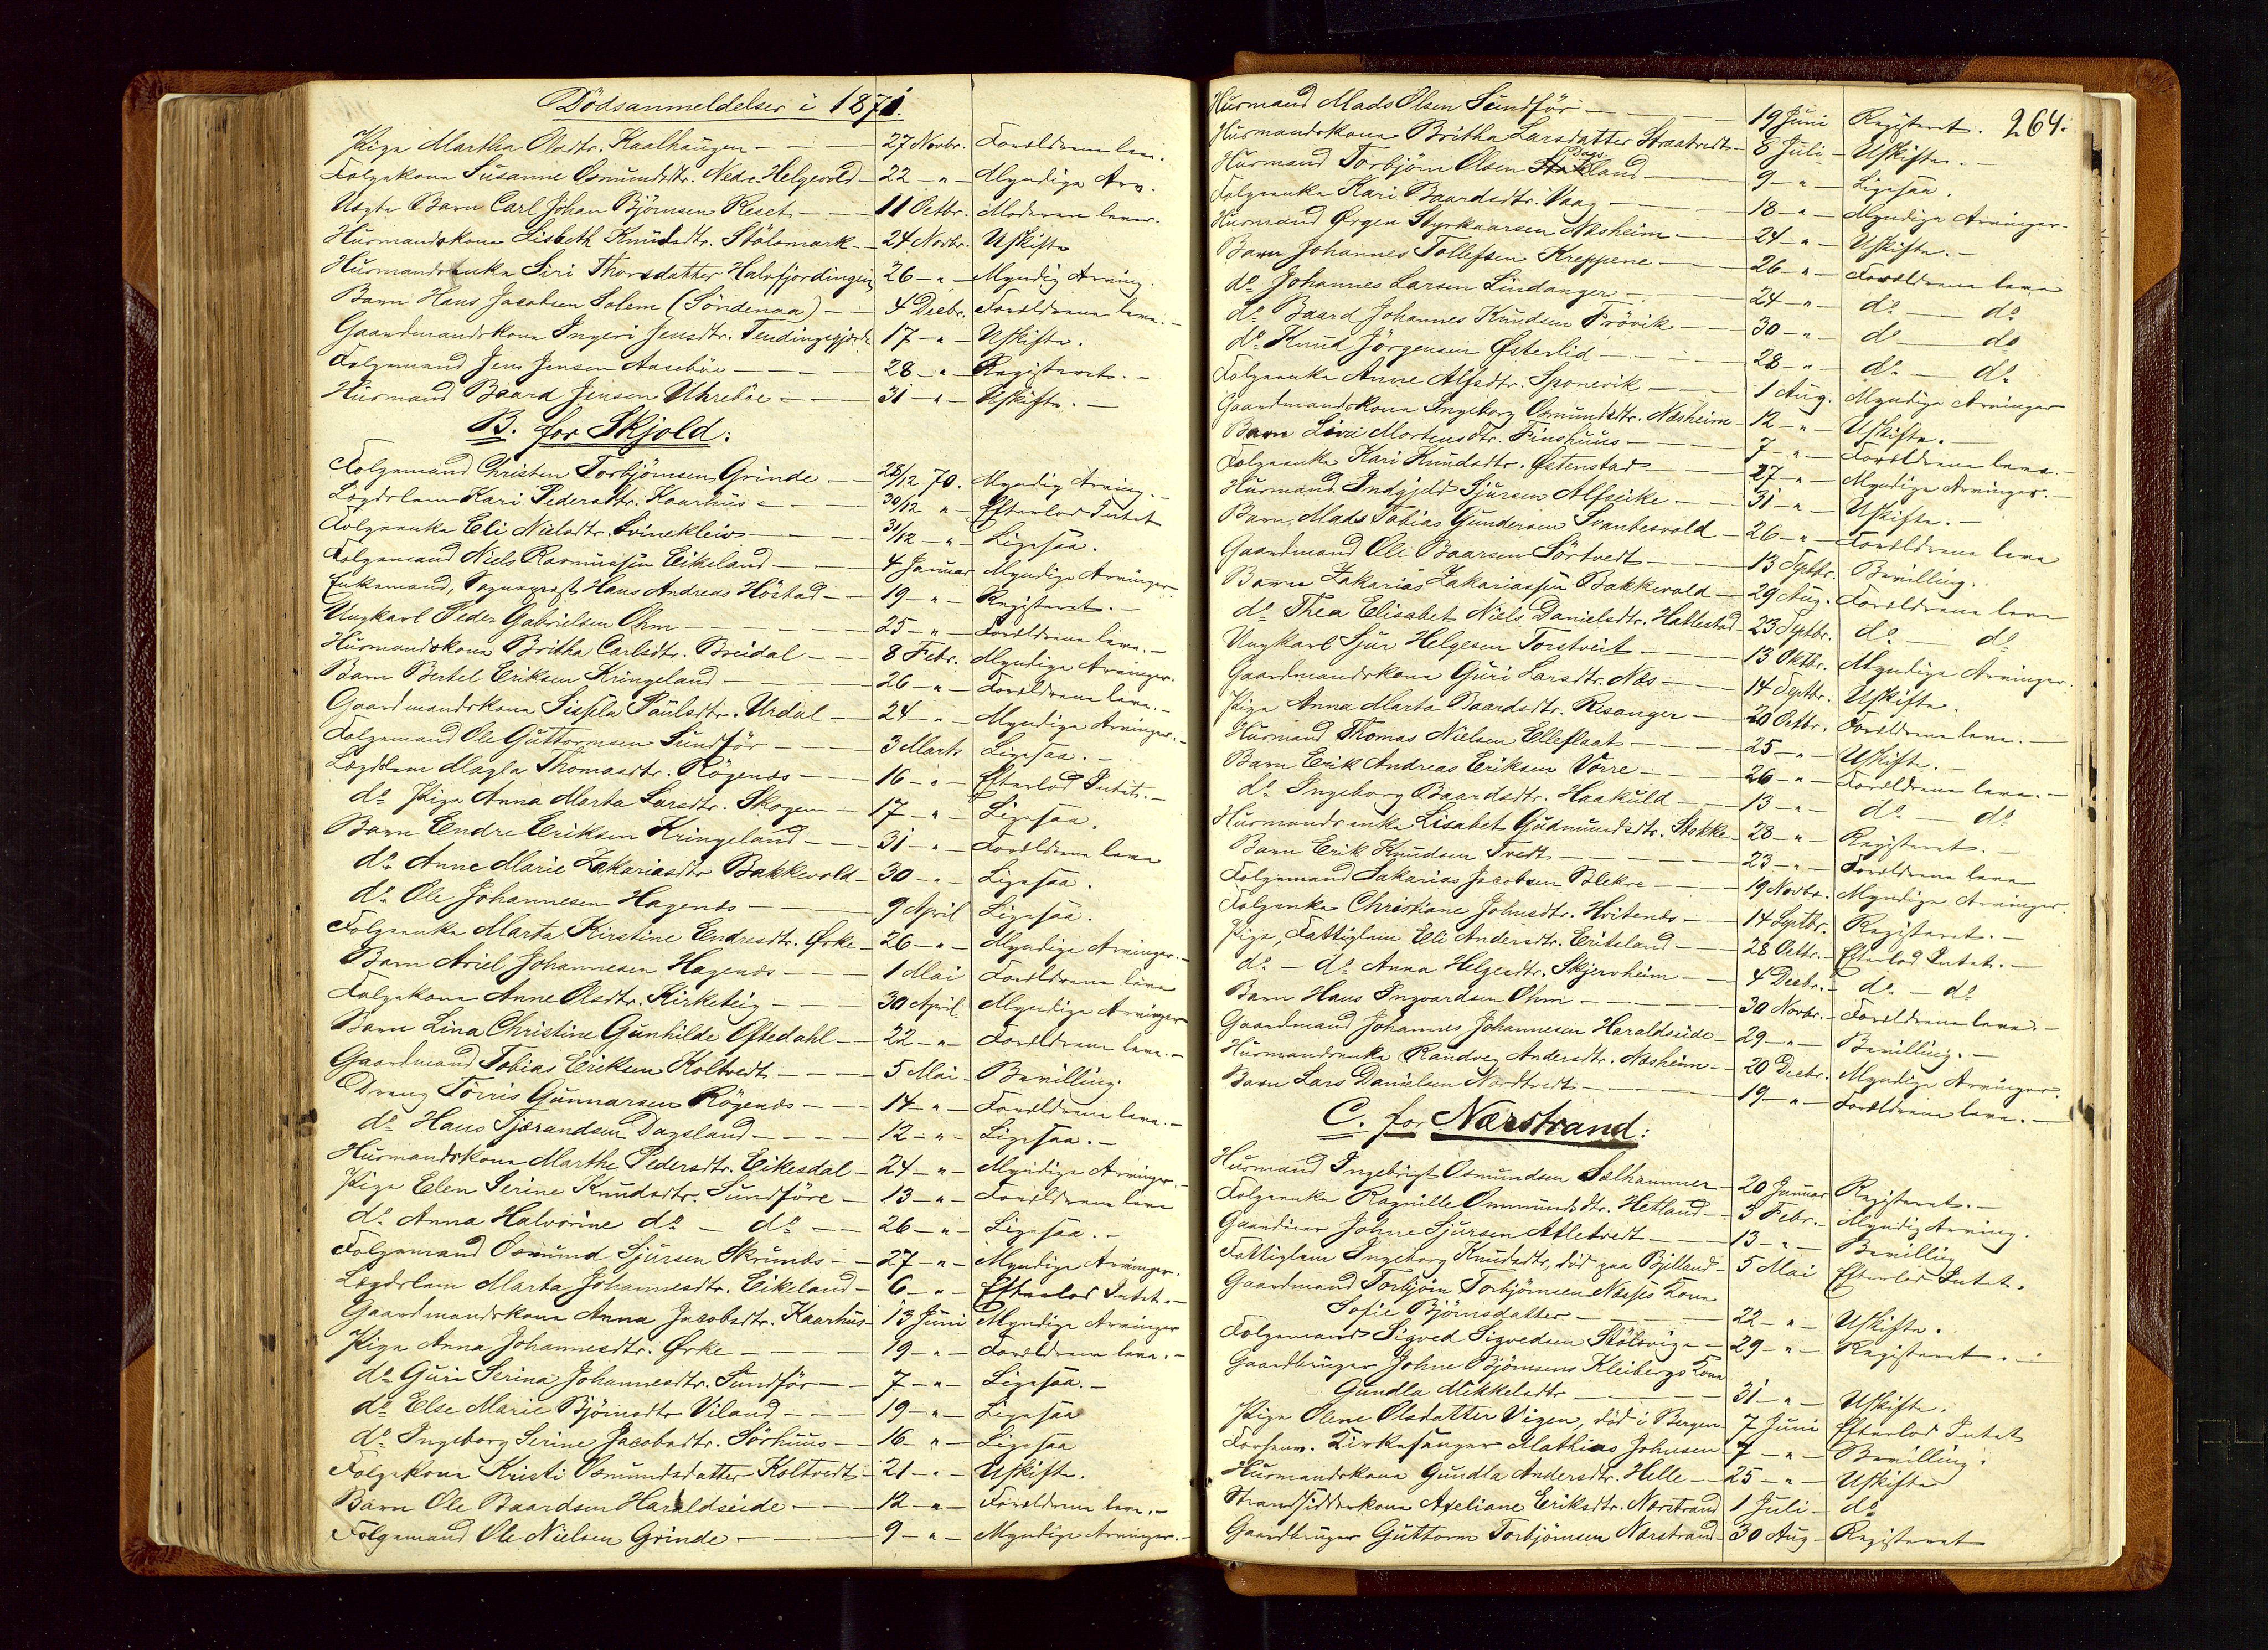 Dödsanmeldelser i 1871.
Pige Martha Olsdtr. Kaalhaugen - - 27 Novbr. Forældrene leve.
Folgekone Susanne Osmundsdtr. Nedre Helgevold - 22 - " - Myndige Arv.
Uægte Barn Carl Johan Bjömsen Reset - - 11 Octbr. Moderen lever.
Husmandskone Lisbeth Knudsdtr. Stölsmark - 24 Novbr. Uskifte
Husmandsenke Siri Thorsdatter Halsfjordingen 26 - " - Myndig Arving.
Barn Hans Jacobsen Solem (Söndenaa) - - 4 Decbr. Forældrene leve. -
Gaardmandskone Ingeri Jensdtr. Tendingsgjerde 17 - " - Uskifte.
Folgemand Jens Jensen Aaseböe - - - 28 - " - Registeret. -
Husmand Baard Jensen Uhreböe - - - 31 - " - Uskifte. -
B. for Skjold:
Folgemand Christen Torbjörnsen Grinde - - 28/12 70. Myndig Arving. -
Lægdslem Kari Pedersdtr. Kaarhus - - - 30/12 " - Efterlod Intet
Folgeenke Eli Nielsdtr. Svinekleiv - - - 31/12 - " - Ligesaa.
Folgemand Niels Rasmussen Eikeland - - 4 Januar Myndige Arvinger
Enkemand, Sogneprest Hans Andreas Höstad - - 19 - " - Registeret. -
Ungkarl Peder Gabrielsen Ohm - - - 25 - " - Forældrene leve. -
Husmandskone Britha Carlsdtr. Breidal - - 8 Febr. Myndige Arvinger.
Barn Bertel Eriksen Kringeland - - - 26 - " - Forældrene leve. -
Gaardmandskone Sissela Paulsdtr. Urdal - 24 - " - Myndige Arvinger. -
Folgemand Ole Guttormsen Sundför - - - 3 Marts Ligesaa. -
Lægdslem Magla Thomasdtr. Rögenæs - - 16 - " - Efterlod Intet. -
do Pige Anna Marta Larsdtr. Skogen - 17 - " - Ligesaa.
Barn Endre Eriksen Kringeland - - - 31 - " - Forældrene leve
do Anne Marie Zakariasdtr Bakkevold - 30 - " - Ligesaa.
do Ole Johannesen Hagenæs - - - 9 April Ligesaa.
Folgeenke Marta Kirstine Endresdtr. Ørke - 26 - " - Myndige Arvinger. -
Barn Ariel Johannesen Hagenæs - - - 1 Mai Forældrene leve
Folgekone Anne Olsdtr. Kirketeig - - - 30 April Myndige Arvinger
Barn Lina Christine Gunhilde Oftedahl - - 22 - " - Forældrene leve. -
Gaardmand Tobias Eriksen Koltvedt - - - 5 Mai - Bevilling.
Dreng Torris Gunnarsen Rögenæs - - 14 - " - Forældrene leve. -
do Hans Tjerandsen Dagsland - - - 12 - " - Ligesaa. -
Husmandskone Marthe Pedersdtr. Eikesdal - 24 - " - Myndige Arvinger. -
Pige Elen Serine Knudsdtr. Sundföre - 13 - " - Forældrene leve
do Anna Halvorine do - do - - 26 - " - Ligesaa. -
Folgemand Osmund Sjursen Skrunæs - - 27 - " - Myndige Arvinger.
Lægdslem Marta Johannesdtr. Eikeland - 6 - " - Efterlod Intet. -
Gaardmandskone Anna Jacobsdtr. Kaarhus - 13 Juni Myndige Arvinger
Pige Anna Johannesdtr. Ørke - - - 19 - " - Forældrene leve. -
do Guri Serina Johannesdtr. Sundför - - 7 - " - Ligesaa. -
do Else Marie Bjömsdtr Viland - - - 19 - " - Ligesaa
do Ingeborg Serine Jacobsdtr. Sörhuus - - 16 - " - Ligesaa
Folgekone Kristi Osmundsdatter Koltvedt - 21 - " - Uskifte.
Barn Ole Baardsen Haraldseide - - - 12 - " - Forældrene leve. -
Folgemand Ole Nielsen Grinde - - - 9 - " - Myndige Arvinger. -
264.
Husmand Mads Olsen Sundför - - - 19 Juni Registeret.
Husmandskone Britha Larsdatter Straatvedt - 8 Juli - Uskifte. -
Husmand Torbjörn Olsen Dagsland - - - 9 - " - Ligesaa.
Folgeenke Kari Baardsdtr. Vaag - - - 18 - " - Myndige Arvinger.
Husmand Ørgen Styrkaarsen Næsheim - - 24 - " - Uskifte. -
Barn Johannes Tollefsen Kreppene - - - 26 - " - Forældrene leve
do Johannes Larsen Lindanger - - - 24 - " - do - do
do Baard Johannes Knudsen Frövik - - 30 - " - do - do
do Knud Jörgensen Østerlid - - - 28 - " - do - do
Folgeenke Anne Alfsdtr. Sponevik - - - 1 Aug. Myndige Arvinger
Gaardmandskone Ingeborg Osmundsdtr. Næsheim - 12 - " - Uskifte.
Barn Lova Mortensdtr. Finshuus - - - 7 - " - Forældrene leve. -
Folgeenke Kari Knudsdtr. Østenstad - - - 27 - " - Myndige Arvinger. -
Husmand Indgjeld Sjursen Alfseike - - - 31 - " - Uskifte. -
Barn Mads Tobias Gundersen Svantesvold - 26 - " - Forældrene leve
Gaardmand Ole Baarsen Sörtvedt - - - 13 Septbr. Bevilling.
Barn Zakarias Zakariassen Bakkevold - 29 Aug. Forældrene leve
do Thea Elisabet Niels Danielsdtr. Hattlestad - 23 Septbr. do - do
Ungkarl Sjur Helgesen Torstveit - - - 13 Oktbr. Myndige Arvinger.
Gaardmandskone Guri Larsdtr. Næs - - 14 Septbr. Uskifte.
Pige Anna Marta Baardsdtr. Risanger - - 20 Octbr. Forældrene leve. -
Husmand Thomas Nielsen Elleflaat - - - 25 - " - Uskifte. -
Barn Erik Andreas Eriksen Vorre - - - 26 - " - Forældrene leve. -
do Ingeborg Baardsdtr. Haakuld - - - 13 - " - do - do
Husmandsenke Lisabet Gudmundsdtr. Stakke - 28 - " - Registeret. -
Barn Erik Knudsen Tvedt - - - 23 - " - Forældrene leve
Folgemand Sakarias Jacobsen Blekre - - - 19 Novbr. Myndige Arvinger.
Folgeenke Christiane Johnsdtr. Hvitenæs - - 14 Septbr. Registeret. -
Pige, Fattiglem Eli Andersdtr. Eriteland - - 28 Octbr. - Efterlod Intet. -
do - do Anna Helgesdtr. Skjervheim - - 4 Decbr. - do - do
Barn Hans Ingvardsen Ohm - - - 30 Novbr. - Forældrene leve. -
Gaardmand Johannes Johannesen Haraldseide - 29 - " - Bevilling. -
Husmandsenke Randveg Andersdtr. Næsheim - - 20 Decbr. Myndige Arvinger.
Barn Lars Danielsen Nordtvedt - - - 19 - " - Forældrene leve. -
C. for Nærstrand:
Husmand Ingebrigt Osmundsen Sælhammer - 20 Januar Registeret. -
Folgeenke Ragnille Ommundsdtr. Hetland - - 3 Febr. - Myndig Arving.
Gaardmand Johne Sjursen Atletvedt - - 13 - " - Bevilling
Fattiglem Ingeborg Knudsdtr, död paa Bjelland - 5 Mai Efterlod Intet.
Gaardmand Torbjörn Torbjörnsen Næsses Kone
Sofie Bjömsdatter - - - 22 - " - Uskifte.
Folgemand Sigved Sigvedsen Stölsvige - 29 - " - Registeret. -
Gaardbruger Johne Bjömsens Kleibergs Kone
Gundla Mikkelsdtr - - - 31 - " - Uskifte.
Pige Olene Olsdatter Vigen, död i Bergen - 7 Juni Efterlod Intet
Forhenv. Kirkesanger Mathias Johnsen - 7 - " - Bevilling.
Husmandskone Gundla Andersdtr. Helle - - 25 - " - Uskifte
Strandsidderkone Axeliane Eriksdtr. Nærstrand 1 Juli - do
Gaardbruger Guttorm Torbjörnsen Nærstrand - 30 Aug - Registeret